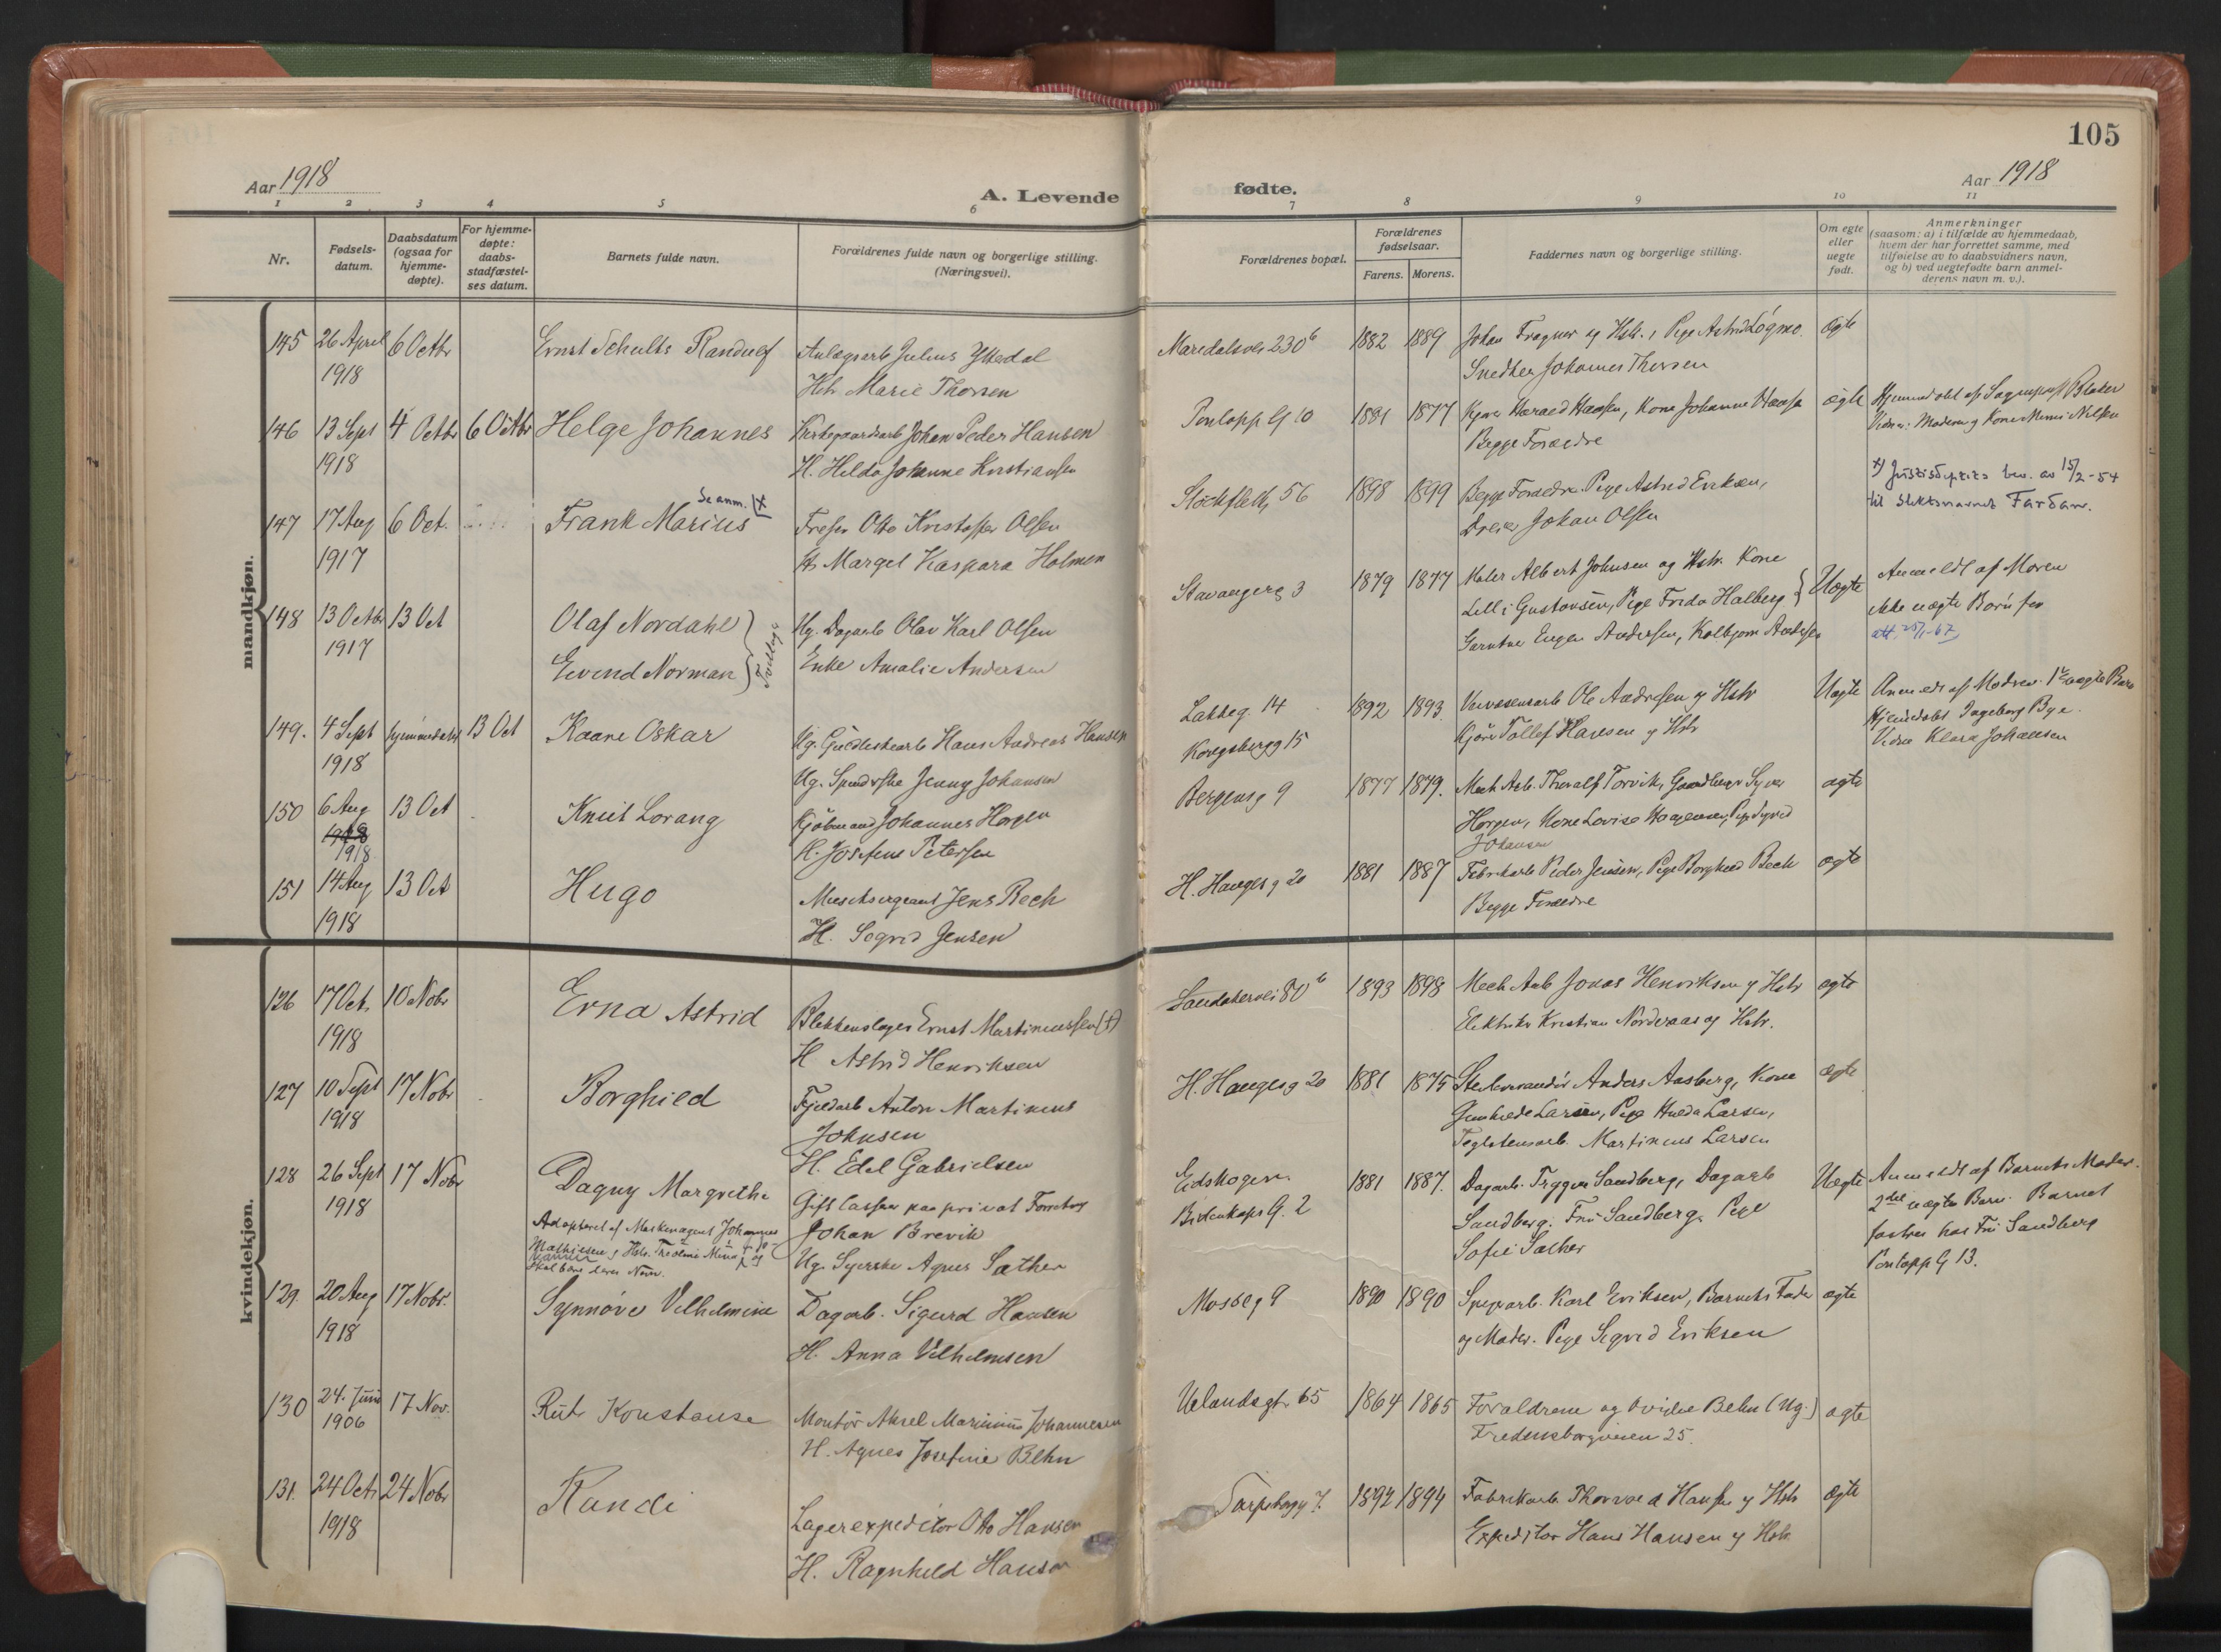 105
Aar 1918
A. Levende
fødte.
Aar 1918
1 2 3 4 5 6 7 8 9 10 11
Nr.
Fødsels-
datum.
Daabsdatum
(ogsaa for
hjemme-
døpte).
For hjemme-
døpte:
daabs-
stadfæstel-
ses datum.
Barnets fulde navn.
Forældrenes fulde navn og borgerlige stilling.
(Næringsvei).
Forældrenes bopæl.
Forældrenes
fødselsaar.
Farens. Morens.
Faddernes navn og borgerlige stilling.
Om egte
eller
uegte
født.
Anmerkninger
(saasom: a) i tilfælde av hjemmedaab,
hvem der har forrettet samme, med
tilføielse av to daabsvidners navn,
og b) ved uegtefødte barn anmel-
derens navn m. v.).
mandkjøn.
145 26 April 1918 6 Octbr Ernst Schults Randulf
Anlægsarb Julius
Hstr. Marie Thorsen
Maridalsvei 230 b 1882 1889
Johan Fragner og Hstr., Pige Astrid Løgmo
Snedker Johannes Thorsen
ægte
146 13 Sept 1918 4 Octbr 6 Octbr Helge Johannes
Kirkegaardsarb Johan Peder Hansen
H. Hilda Johanne Kristiansen
Pontopp G 10 1881 1877
Kjører Harald Hansen, Kone Johanne Hansen
Begge Forældre
ægte
Vidner: Moderen og Kone Minni Nilsen
147 17 Aug 1917 6 Oct. Frank Marius
Se anm. x
Freser Otto Kristoffer Olsen
H. Margel Kaspara Holmen
Stockfleths 56 1898 1899
Begge Forældre Pige Astrid Eriksen,
Dreier Johan Olsen
x) Justisdeptets bev. av 15/2-54
til slektsnavnet Fardan.
148 13 Octbr 1917 13 Oct
Olaf Nordahl
Eivend Norman
Tvillinge
Ug. Dagarb Olav Karl Olsen
Enke Amalie Andersen
Stavangerg 3 1879 1877
Maler Albert Johnsen og Hstr. Kone
Lilli Gustavsen, Pige Frida Halberg
Gartner Eugen Andersen, Kolbjørn Andersen
Uægte
Anmeldt af Moren
att. 25/1-67
149. 4 Sept 1918 hjemmedøbt 13 Oct Kaare Oskar
Ug. Hans Andreas Hansen
Ug. Jenny Johansen
Lakkeg. 14
Kongsbergg 15
1892 1893
Ole Andresen og Hstr
Tollef Hansen og Hstr
Uægte
Anmeldt af Moderen. 1ste uægte Barn
Hjemmedøbt Ingeborg Bye.
Vidne Klara Johansen
150 6 Aug 1918 13 Oct Knut Lorang
Kjøbmand Johannes Horgen
H. Josefine Petersen
Bergensg 9 1877 1879.
Mech Arb. Thoralf Torvik, Syver
Horgen, Kone Lovise Haagensen, Pige Sigrid
Johansen
ægte
151 14 Aug 1918 13 Oct Hugo
Musiksergeant Jens Bech
H. Sigrid Jensen
H. Haugesg 20 1881 1887
Fabrikarb Peder Jensen, Pige Borghild Bech
Begge Forældre
ægte
kvindekjøn.
126 17 Oct. 1918 10 Nobr Erna Astrid
Blikkenslager Ernst Martinussen (†)
H Astrid Henriksen
Sandakervei 80 b 1893 1898
Mech Arb Jonas Henriksen og Hstr
Elektriker Kristian Norderaas og Hstr.
ægte
127 10 Sept 1918 17 Nobr Borghild
Fjeldarb Anton Martinius
Johnsen
H. Edel Gabrielsen
H. Haugesg 20 1881 1875
Anders Aasberg, Kone
Gunhilde Larsen, Pige Hulda Larsen,
Teglstensarb. Martinius Larsen
ægte
128 26 Sept 1918 17 Nobr Dagny Margrethe
Adopteret af Maskinagent Johannes
Mathisen og Hstr.
skal bære deres Navn.
Gift Casserer paa privat Forretng
Johan Brevik
Ug. Syerske Agnes Sæther
Eidskogen
Bidenkaps G. 2
1881 1887.
Dagarb. Trygve Sandberg, Dagarb
Sandberg. Fru Sandberg. Pige
Sofie Sæther
Uægte
Anmeldt af Barnets Moder.
2det uægte Barn. Barnet
fostres hos Fru Sandberg
Pontopp G 13.
129. 20 Aug 1918 17 Nobr. Synnøve Vilhelmine
Dagarb. Sigurd Hansen
H. Anna Vilhelmsen
Mosseg 9 1890 1890
Karl Eriksen, Barnets Fader
og Moder. Pige Sigrid Eriksen
ægte
130 24. Juni 1906 17 Nov. Rut Konstanse
Montør Aksel Marinius Johannesen
H. Agnes Josefine Behn
Uelandsgt. 65 1864 1865
Forældrene og Ovidie Behn (Ug.)
Fredensborgveien 25.
ægte
131. 24 Oct. 1918 24 Nobr Randi
Lagerexpeditør Otto Hansen
H. Ragnhild Hansen
Sarpsborgg 7. 1892 1894
Fabrikarb Thorvald Hansen og Hstr
Expeditør Hans Hansen og Hstr
ægte